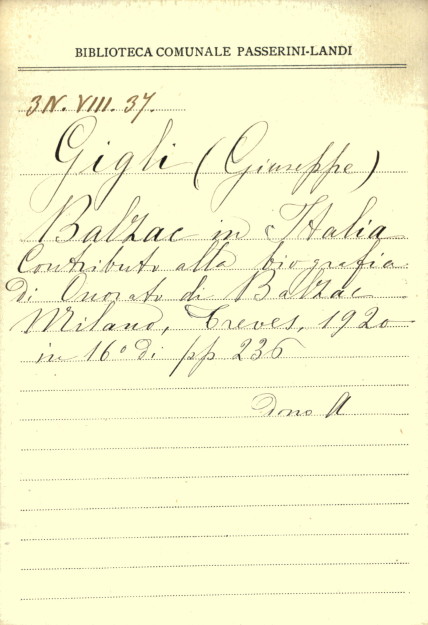 BIBLIOTECA COMUNALE PASSERINI-LANDI
3N. VIII. 37.
Gigli (Giuseppe)
Balzac in Italia
Contributo alla biografia
di Onorato di Balzac
Milano, Treves, 1920
in 16° di pp 236
Dono A